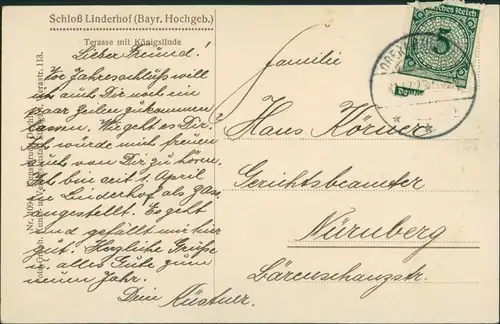 Schloß Linderhof (Bayr. Hochgeb.)
Terasse mit Königslinde
Lieber Freund!
Vor Jahresschluß will
ich auch Dir noch ein
paar Zeilen zukommen
lassen. Wie geht es Dir?
Ich würde mich freuen
auch von Dir zu hören.
Ich bin seit 1. April
in Linderhof als
angestellt. Es geht
und gefällt mir hier
gut. Herzliche Grüße
u. alles Gute zum
neuen Jahr.
Dein Küstner.
Familie
Hans Körner
Gerichtsbeamter
Nürnberg
Bärenschanzstr.
Deutsches Reich
5